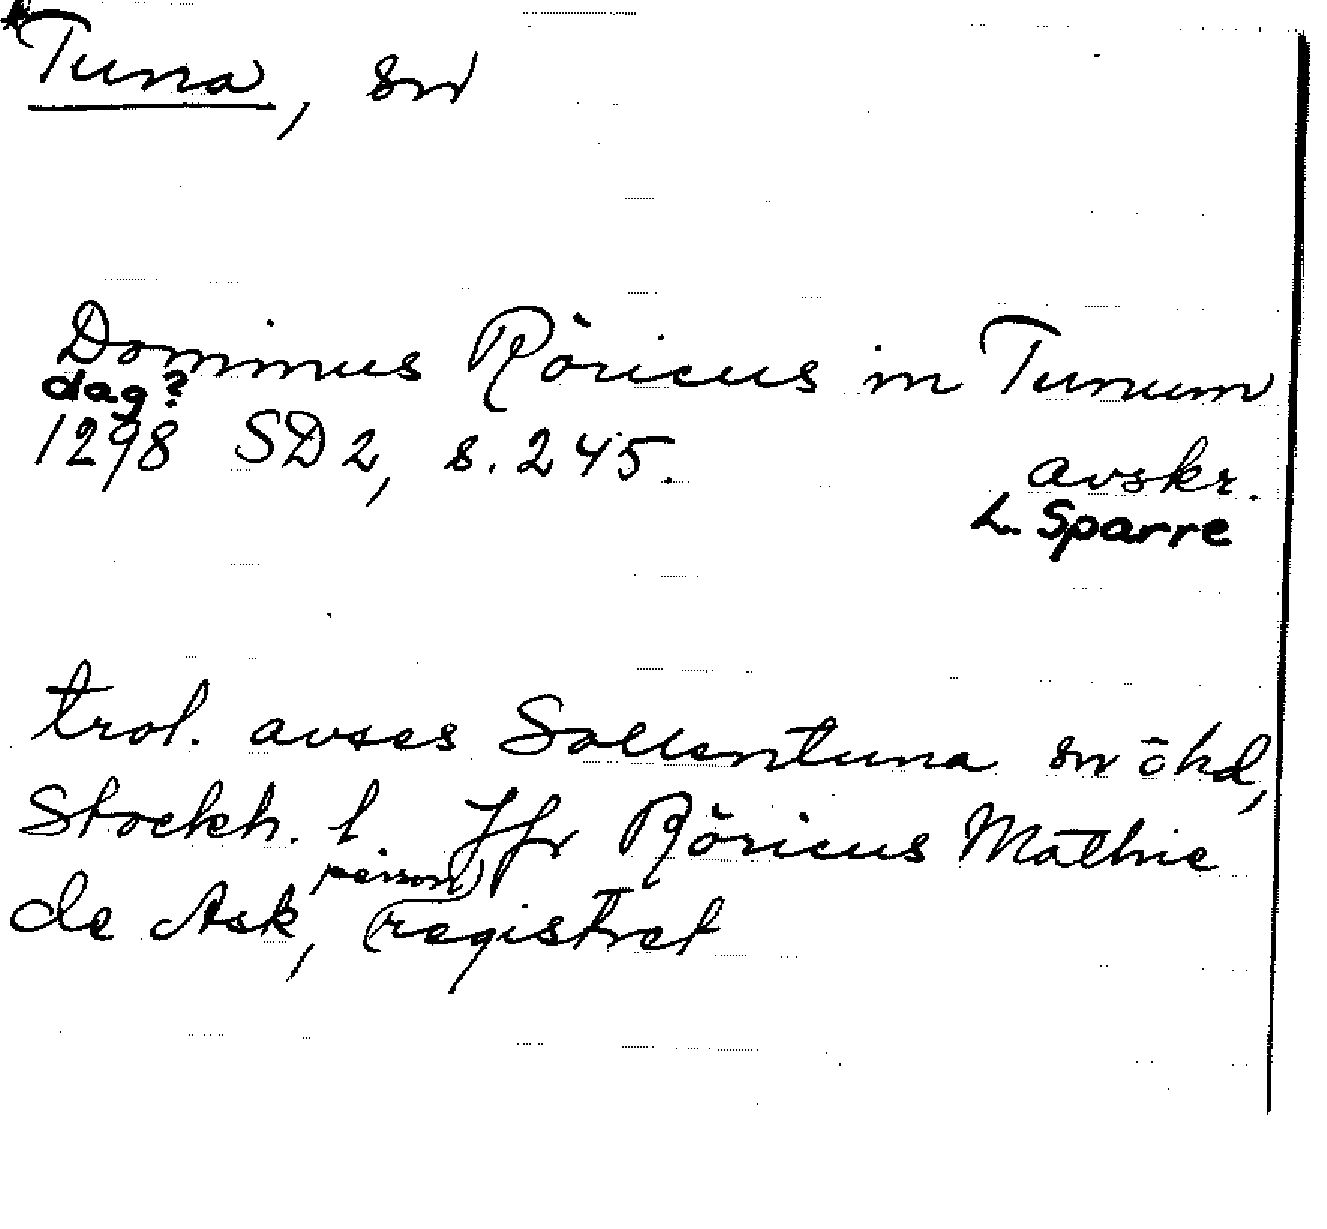 Tuna, sn
Dominus Röricus in Tunum
dag?
1298 SD 2, s. 245.
avskr.
L. Sparre
trol. avses Sollentuna sn ö hd,
Stockh. l. Jfr Röricus Mathie
de Ask, personregistret